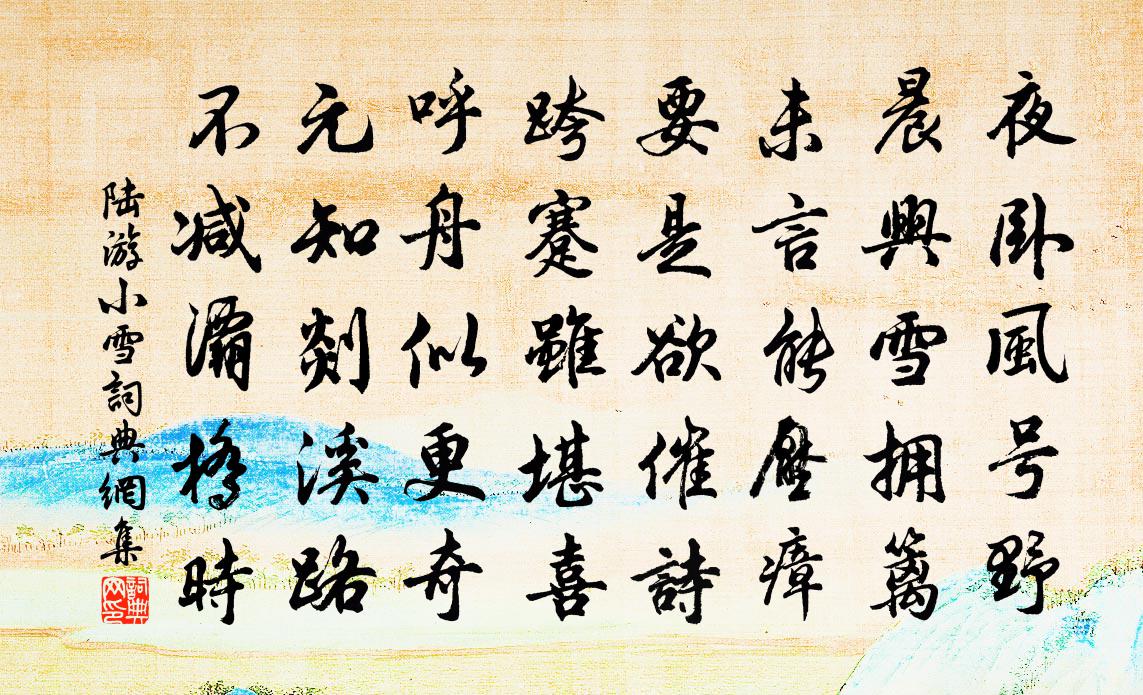 夜卧風号野
晨興雪拥篱
未言能壓瘴
要是欲催詩
跨蹇雖堪喜
呼舟似更奇
元知剡溪路
不减灞橋時
陆游小雪詞典網集
詞典网印